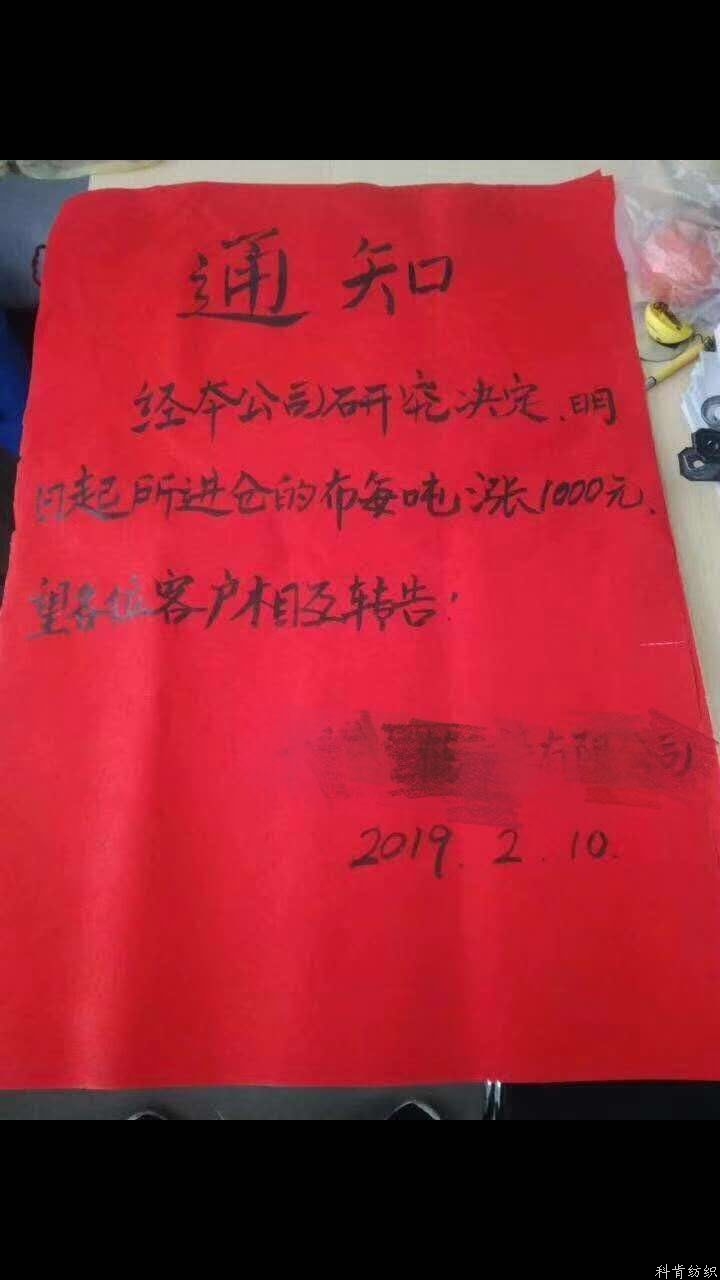 通知
经本公司研究决定、明
日起所进仓的布每吨涨1000元、
望各位客户相互转告!
有限公司
2019.2.10.
科肯纺织